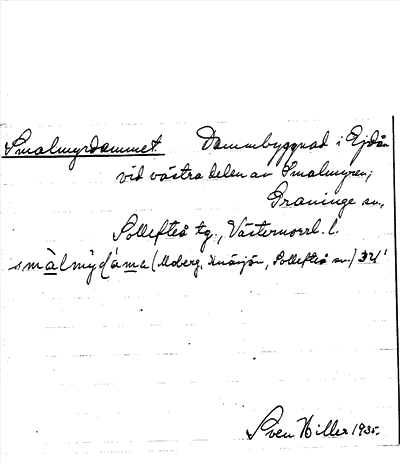 Smalmyrdammet Dammbyggnad i Ejdån
vid västra delen av Smalmyren;
Graninge sn,
Sollefteå tg., Västernorrl. l.
smàlmy̆dáma (Moberg, Knäsjön, Sollefteå sn)
Sven Hiller 1935.